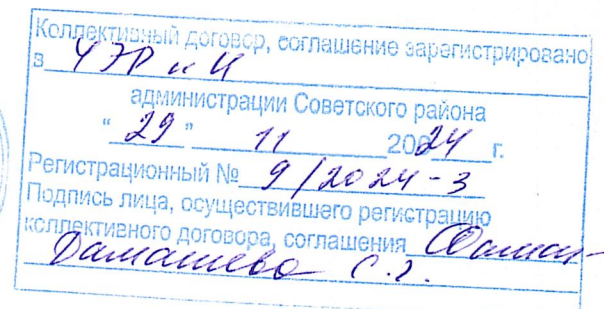 Коллективный договор, соглашение зарегистрировано
в УЭР и И
администрации Советского района
" 29 " 11 2024 г.
Регистрационный № 9/2024-3
Подпись лица, осуществившего регистрацию
коллективного договора, соглашения
С.